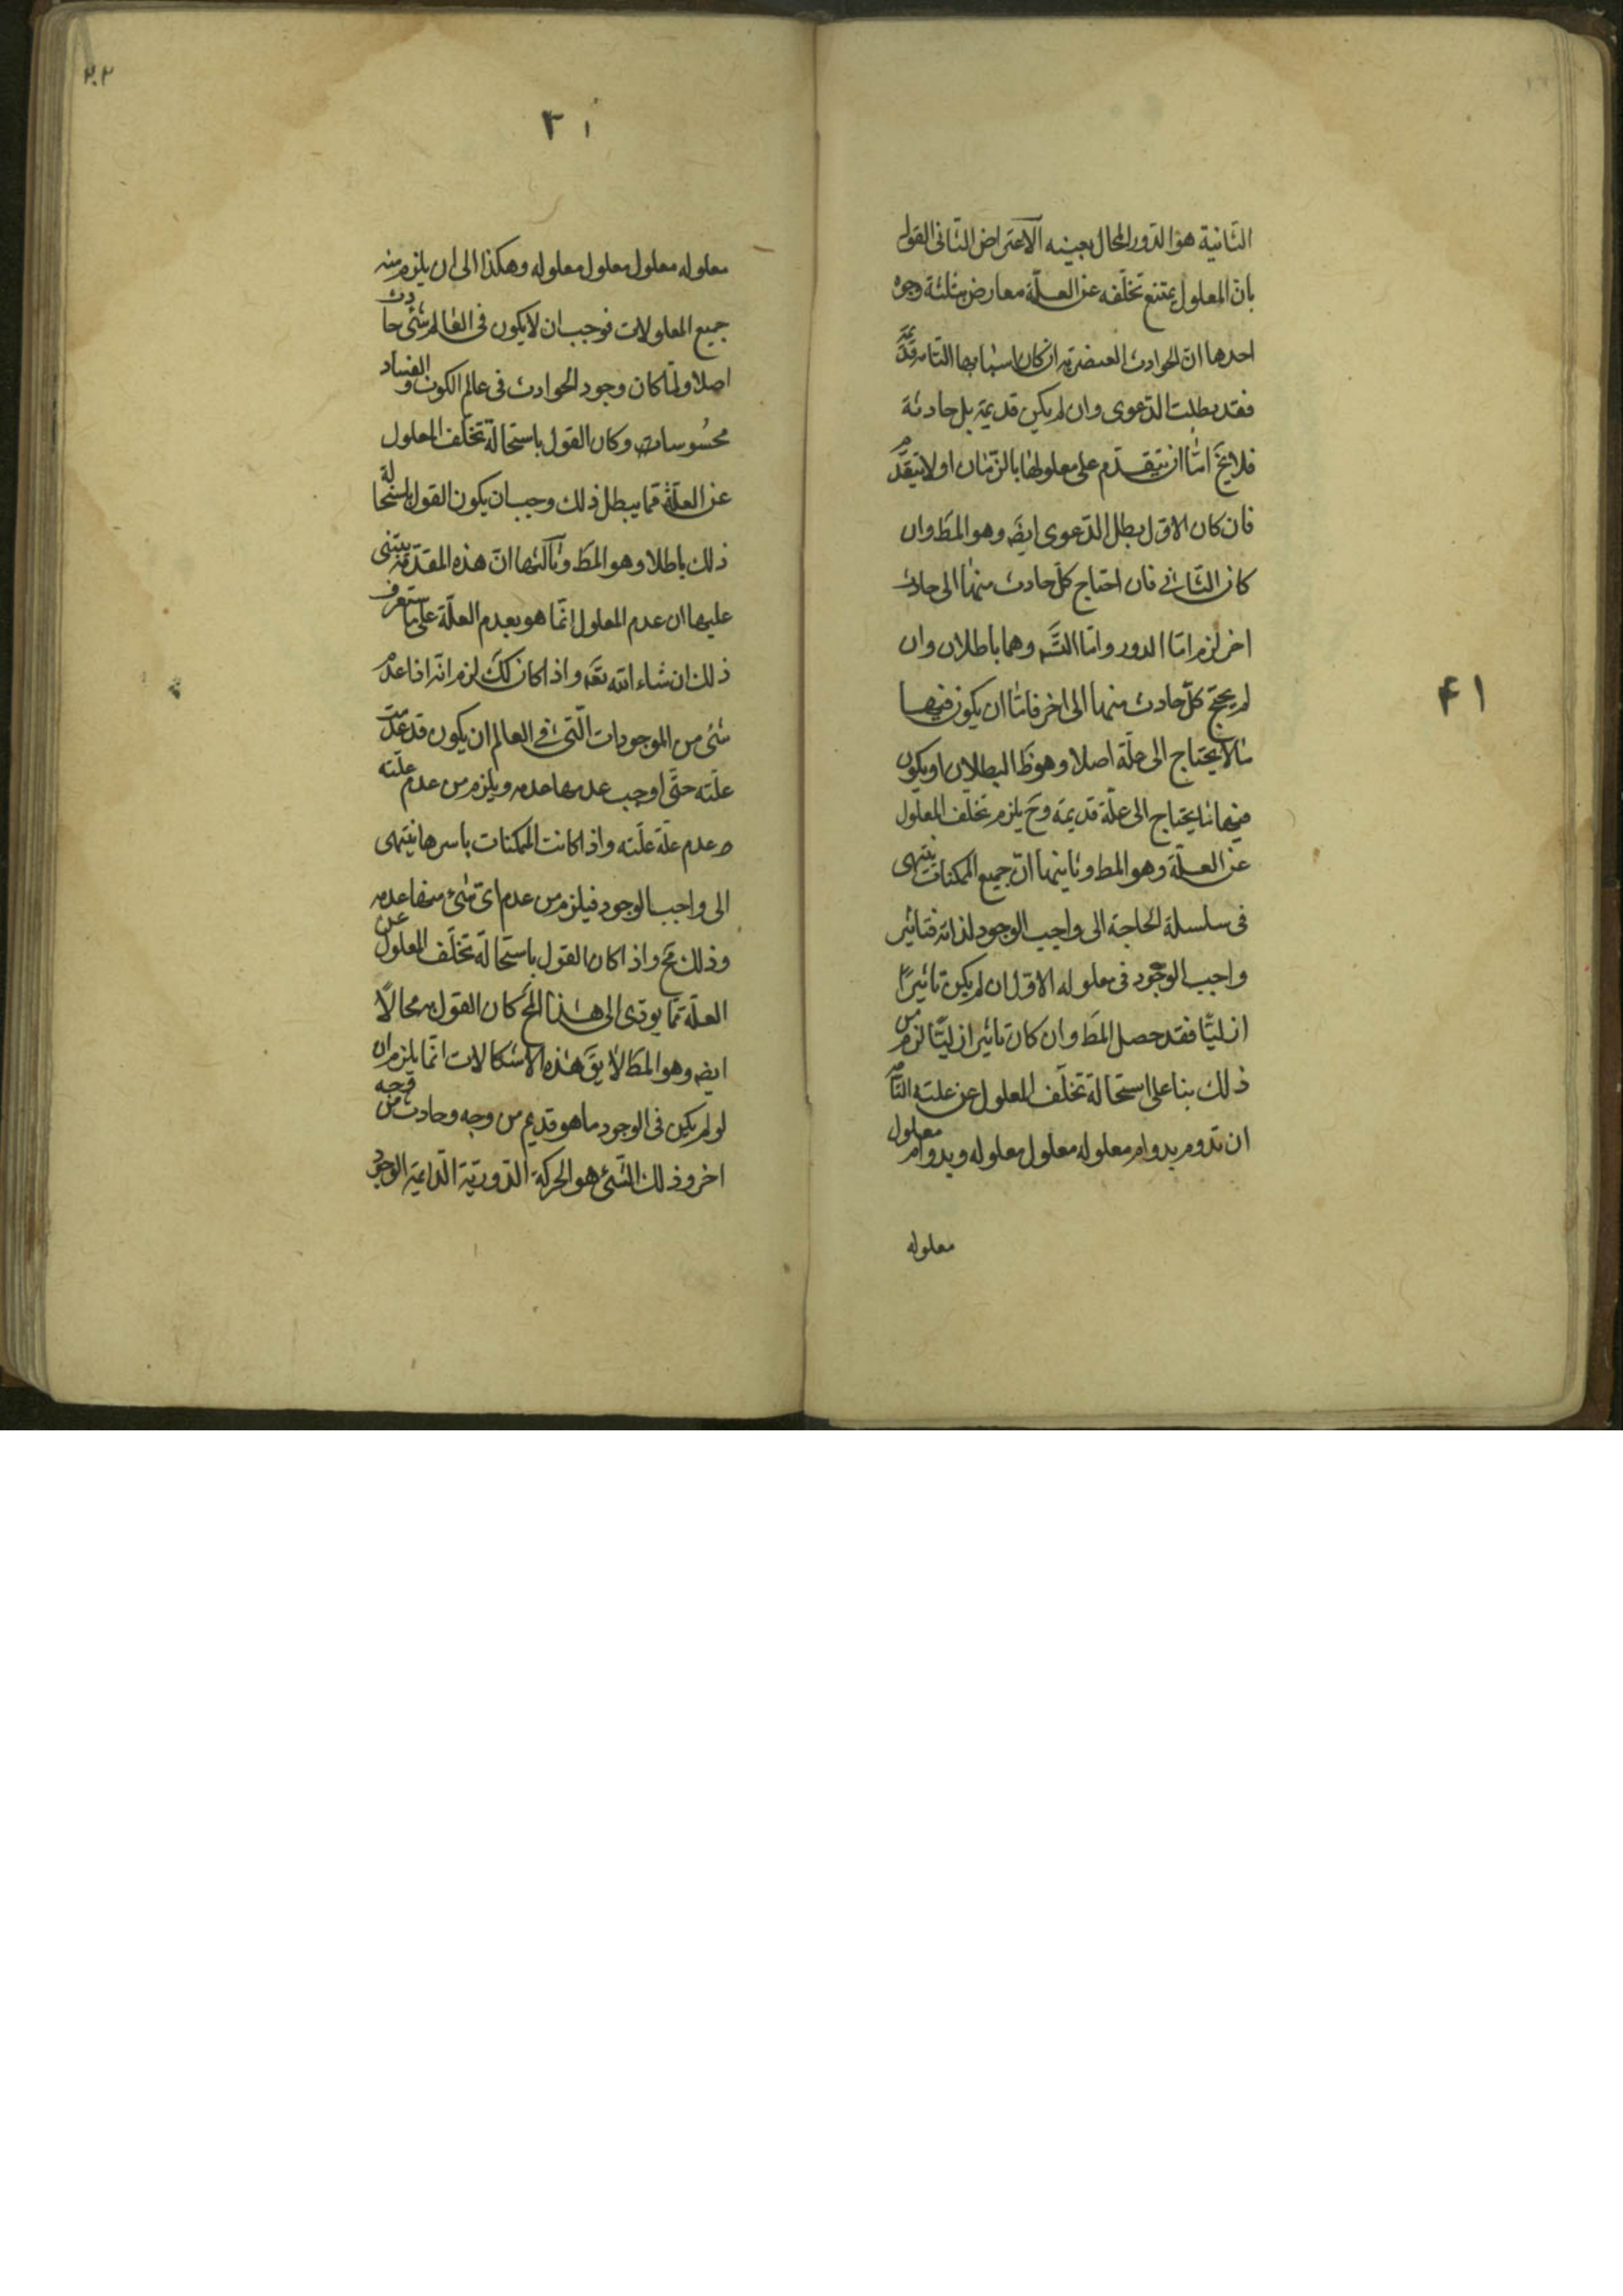 الثانية هو الدور المحال بعينه الاعتراض الثانى القول
بان المعلول يمتنع تخلفه عن العلّة معارض بثلثة وجوه
احدها ان الحوادث العنصرية ان كان اسبابها التامة قديمة
فقد بطلت الدعوى وان لم يكن قديمة بل حادثة
فلا يخ امّا ان يتقدم على معلولها بالزمان او لا يتقدم
فان كان الاول بطل الدعوى ايضَ وهو المطَ وان
كان الثانى فان احتاج كلّ حادث منها الى حادث
اخر لزم امّا الدور وامّا التسَ وهما باطلان وان
لم يحتج كلّ حادث منها الى اخر فامّا ان يكون فيها
ما لا يحتاج الى علّة اصلا وهو ظَ البطلان او يكون
فيها ما يحتاج الى علّة قديمة وحَ يلزم تخلف المعلول
عن العلّة وهو المط وثانيها انّ جميع الممكنات ينتهى
فى سلسلة الحاجة الى واجب الوجود لذاته فتاثير
واجب الوجود فى معلوله الاول ان لم يكن تاثيرًا
ازليّا فقد حصل المطَ وان كان تاثير ازليّا لزم من
ذلك بنا على استحالة تخلّف المعلول عن علته التامّة
ان تدوم بدوام معلوله معلول معلوله وبدوام معلول
معلوله
۴۱
۲۰۲
۴۱
معلوله معلول معلول معلوله وهكذا الى ان يلزم منه
جميع المعلولات فوجب ان لا يكون فى العالم شئ حادث
اصلا ولمّا كان وجود الحوادث فى عالم الكون والفساد
محسُوسات وكان القول باستحالة تخلّف المعلول
عن العلّة مما يبطل ذلك وجب ان يكون القول باستحالة
ذلك باطلا وهو المطَ وثالثها انّ هذه المقدّمة يبتنى
عليها ان عدم المعلول انّما هو بعدم العلّة على ما ستعرف
ذلك ان شاء الله تعَه واذا كان ككَ لزم انّه اذا عدم
شئ من الموجودات الّتى فى العالم ان يكون قد عدمت
علّته حتّى اوجب عدمها عدمه ويلزم من عدم علّته
عدم علّة علّته واذا كانت الممكنات باسرها ينتهى
الى واجب الوجود فيلزم من عدم اىّ شئ منها عدمه
وذلك مَح واذا كان القول باستحالة تخلّف المعلول عن
العلّة ممّا يودى الى هذا المحَ كان القول به محالًا
ايضَ وهو المطَ لا يقَ هذه الاشكالات انّما يلزم ان
لو لم يكن فى الوجود ما هو قديم من وجه وحادث من وجه
اخر وذلك الشّئ هو الحركة الدّوريّة الدّايمة الوجود